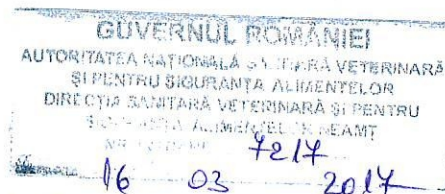 GUVERNUL ROMÂNIEI
AUTORITATEA NAȚIONALĂ SANITARĂ VETERINARĂ
ȘI PENTRU SIGURANȚA ALIMENTELOR
DIRECȚIA SANITARĂ VETERINARĂ ȘI PENTRU
SIGURANȚA ALIMENTELOR NEAMȚ
7217
16 03 2017